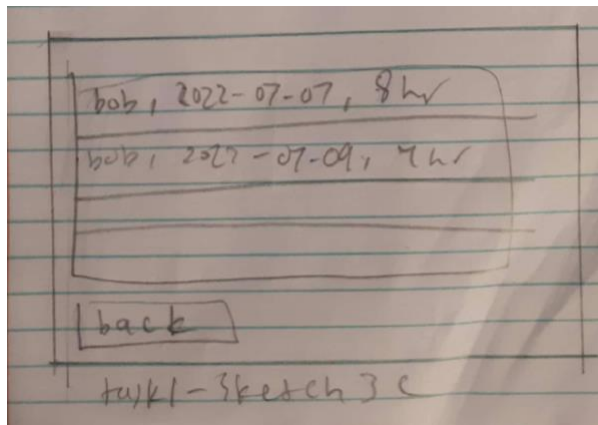 bob, 2022-07-07, 8hr
bob, 2022-07-09, 7hr
back
task1-Sketch3c